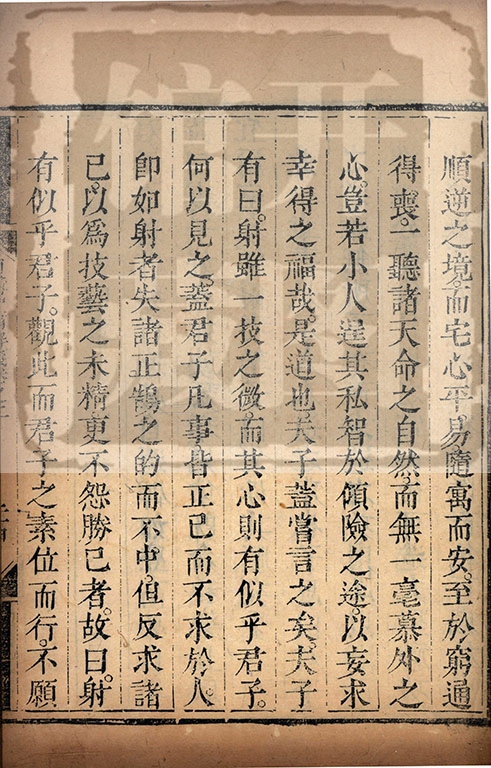 順逆之境。而宅心平易。隨寓而安。至於窮通
得喪。一聽諸天命之自然。而無一毫慕外之
心。豈若小人逞其私智於傾險之途。以妄求
幸得之福哉。是道也。夫子蓋嘗言之矣。夫子
有曰。射雖一技之微。而其心則有似乎君子。
何以見之。蓋君子凡事皆正己而不求於人。
卽如射者失諸正鵠之的而不中。但反求諸
己。以爲技藝之未精。更不怨勝己者。故曰。射
有似乎君子。觀此而君子之素位而行。不願